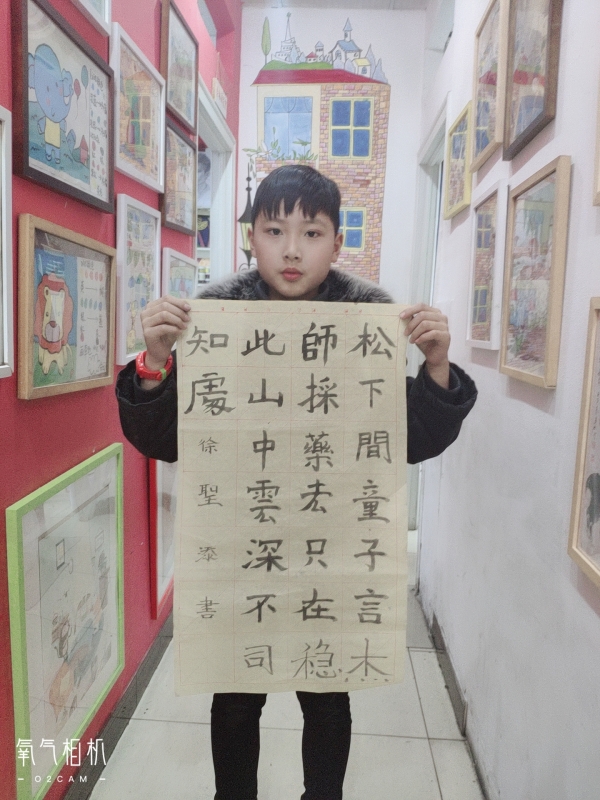 松下間童子言杰
師採藥去只在稳
此山中雲深不司
知處
徐聖書
氧气相机
– O2CAM –